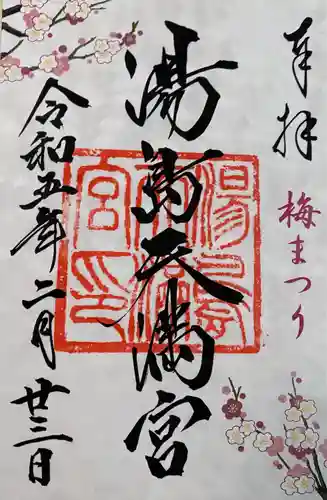 奉拝
梅まつり
湯島天満宮
湯島天満宮印
令和五年二月
廿三日